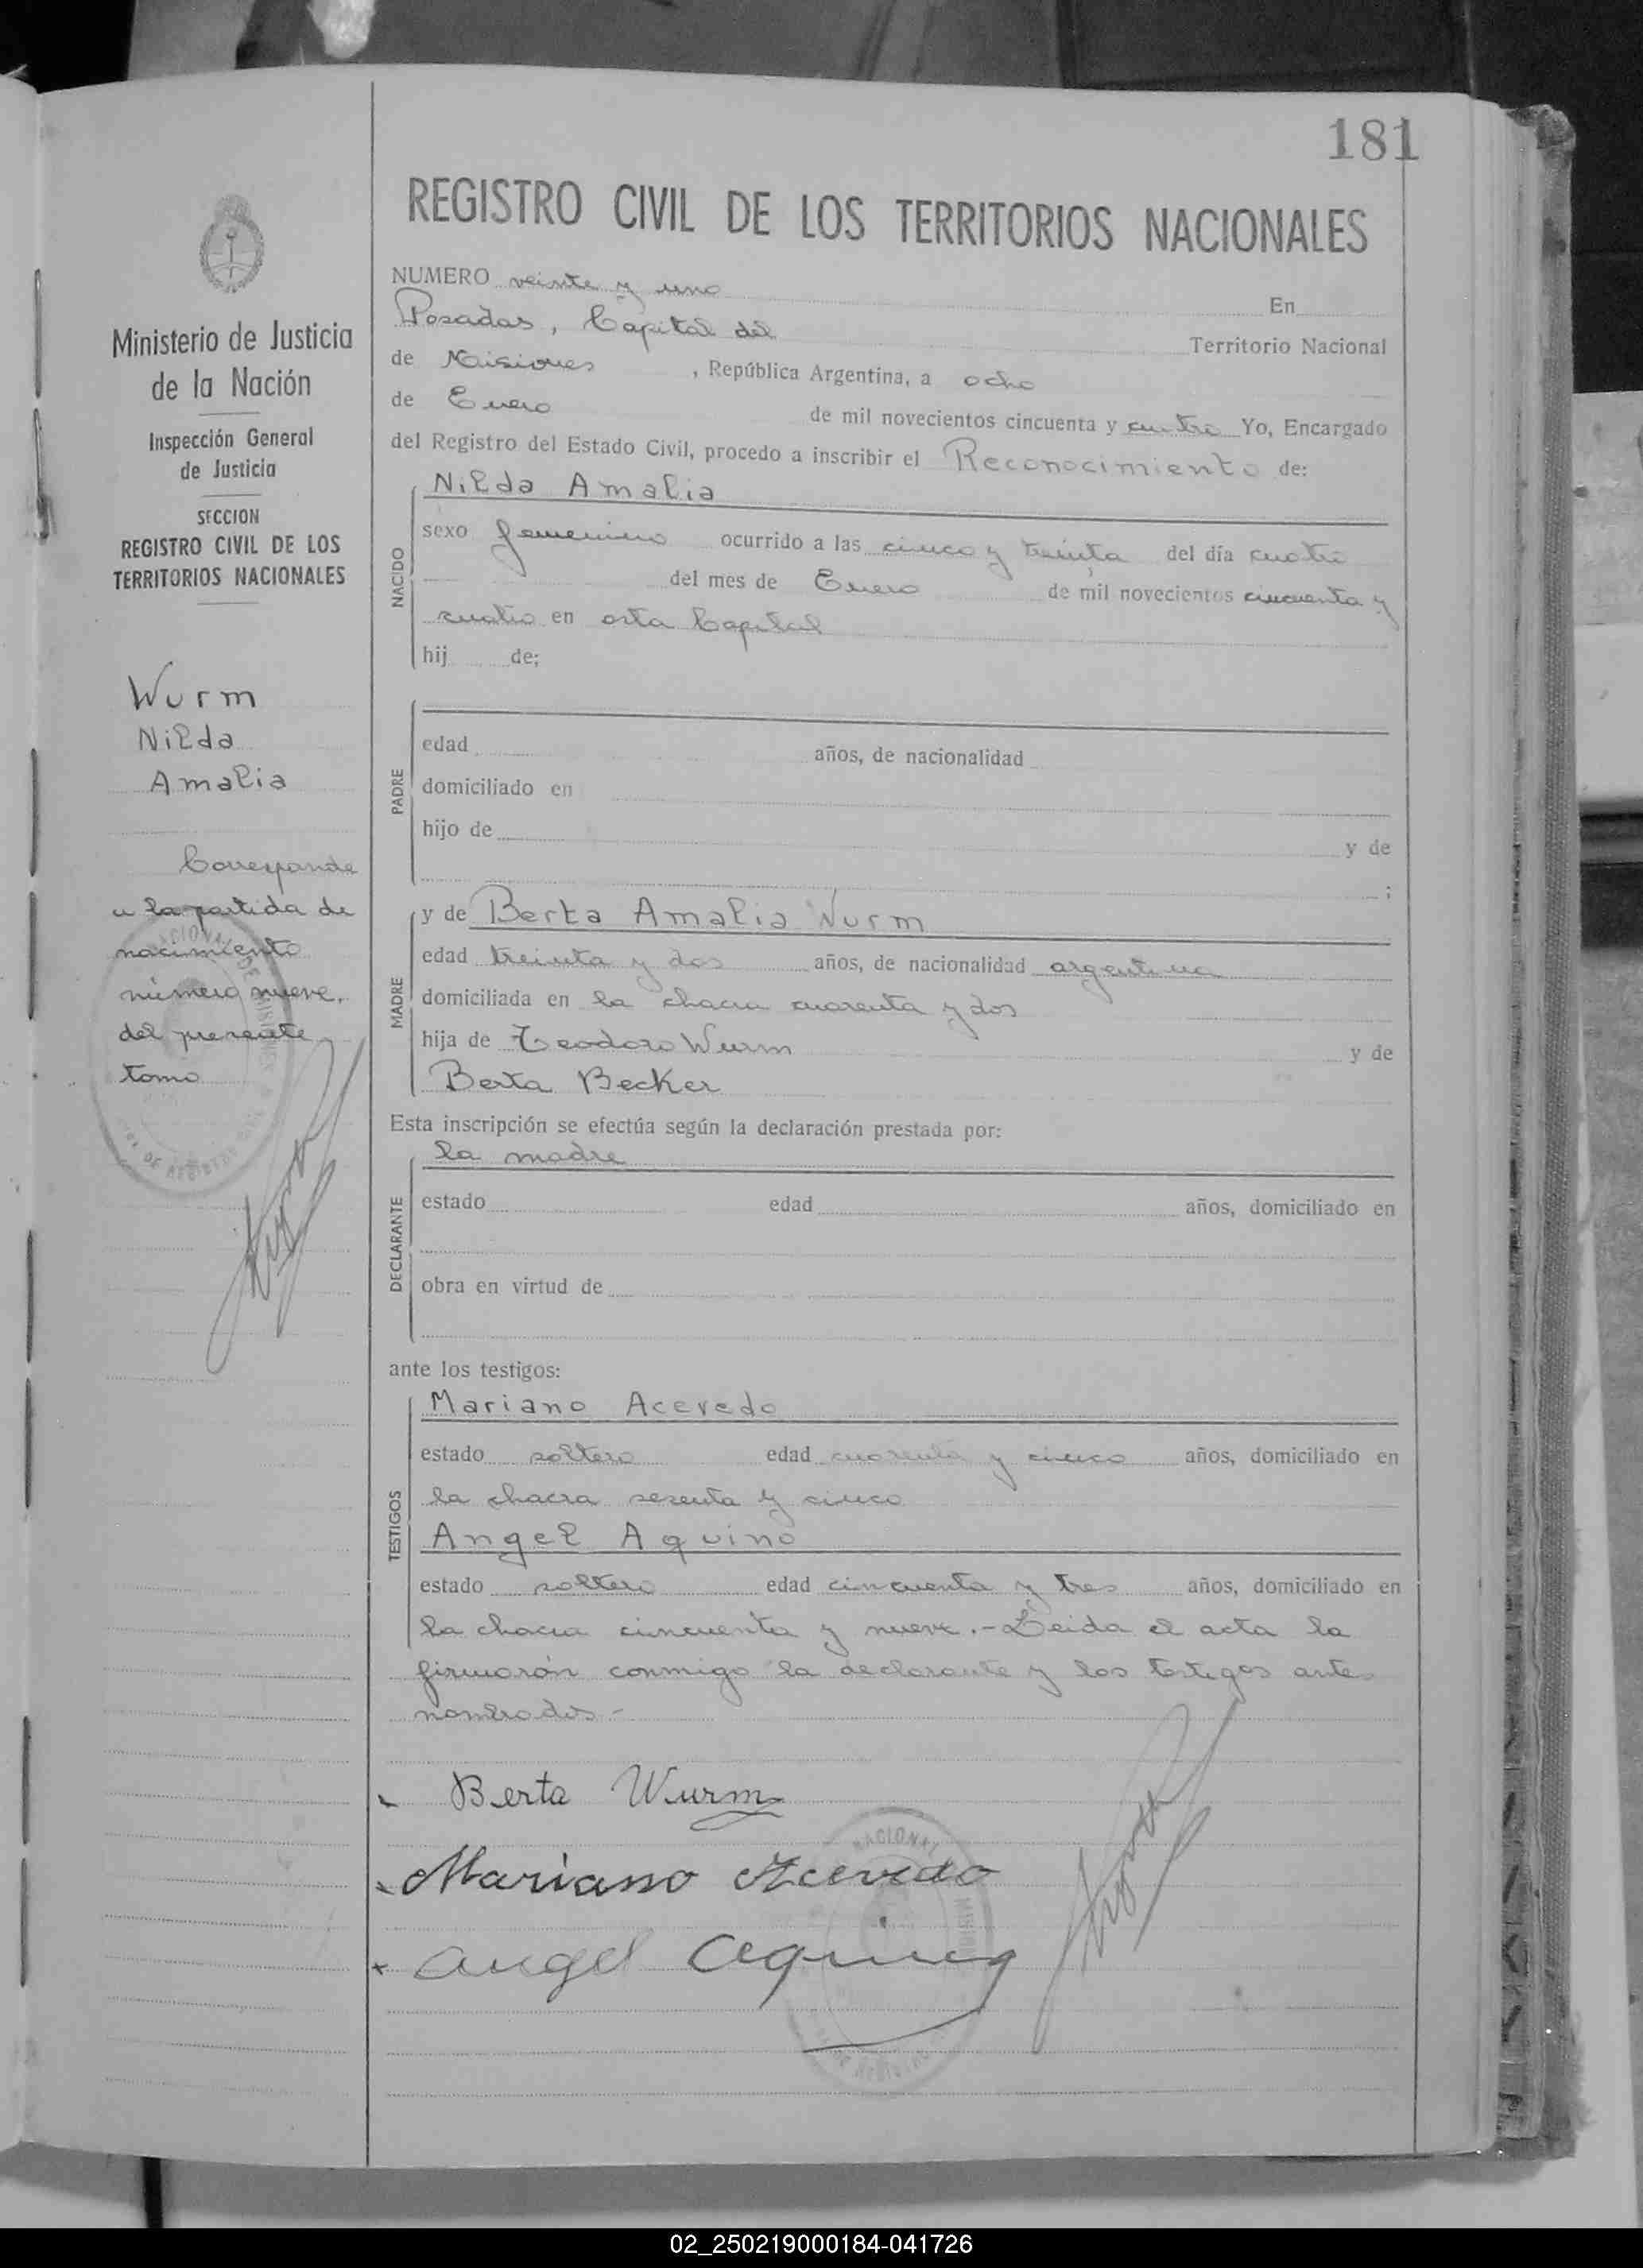 181
REGISTRO CIVIL DE LOS TERRITORIOS NACIONALES
Ministerio de Justicia
de la Nación
Inspección General
de Justicia
SECCION
REGISTRO CIVIL DE LOS
TERRITORIOS NACIONALES
Wurm
Nilda
Amalia
Corresponde
a la partida de
nacimiento
número nueve.
del presente
tomo
NUMERO veinte y uno En
Posadas, Capital del Territorio Nacional
de Misiones, República Argentina, a ocho
de Enero de mil novecientos cincuenta y cuatro Yo, Encargado
del Registro del Estado Civil, procedo a inscribir el Reconocimiento de:
NACIDO
Nilda Amalia
sexo femenino ocurrido a las cinco y treinta del día cuatro
del mes de Enero de mil novecientos cincuenta y
cuatro en esta Capital
hij de;
PADRE
edad años, de nacionalidad
domiciliado en
hijo de y de
;
MADRE
y de Berta Amalia Wurm
edad treinta y dos años, de nacionalidad argentina
domiciliada en la chacra cuarenta y dos
hija de Teodoro Wurm y de
Berta Becker
Esta inscripción se efectúa según la declaración prestada por:
DECLARANTE
la madre
estado edad años, domiciliado en
obra en virtud de
ante los testigos:
TESTIGOS
Mariano Acevedo
estado soltero edad cuarenta y cinco años, domiciliado en
la chacra sesenta y cinco
Angel Aquino
estado soltero edad cincuenta y tres años, domiciliado en
la chacra cincuenta y nueve.- Leida el acta la
firmarón conmigo la declarante y los testigos ante
nombrados.-
Berta Wurm
Mariano Acevedo
Angel Aquino
02_250219000184-041726